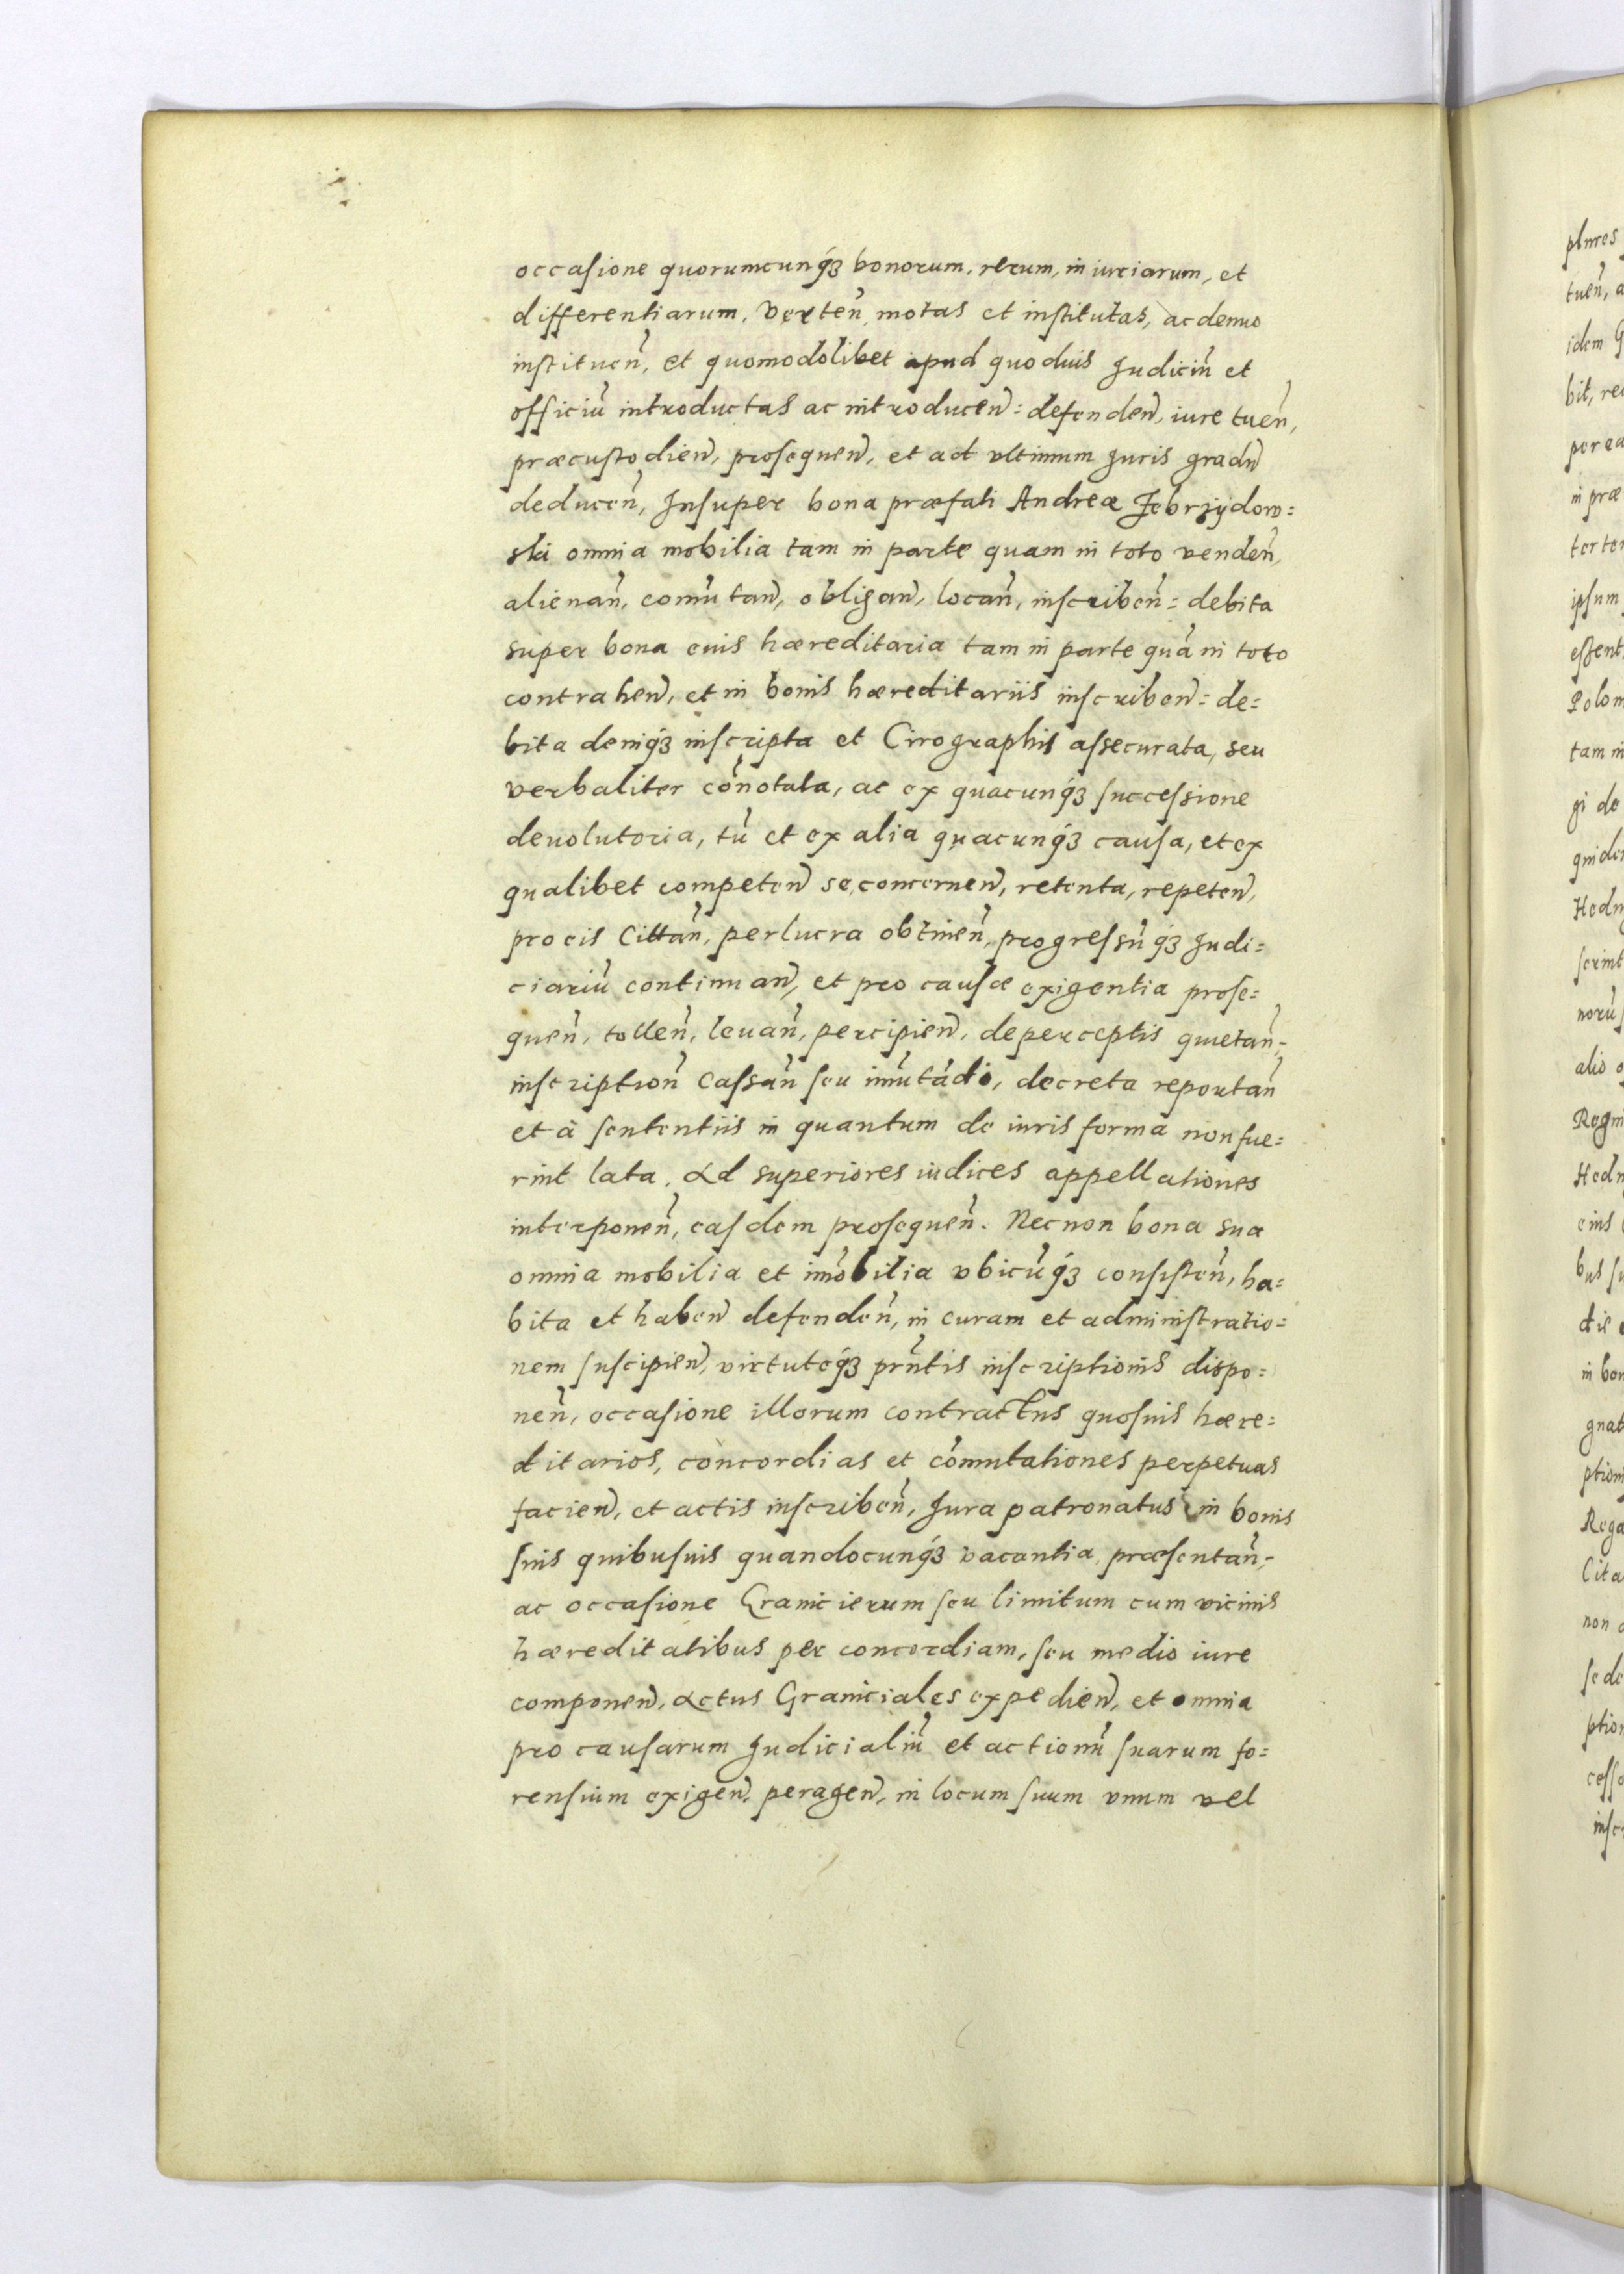 occasione quorumcunqꝫ bonorum, rerum, in iuriarum, et
differentiarum, verteñ, motas et institutas, ac denuo
institueñ, et quomodolibet apud quoduis Judiciũ et
officiũ introductas ac introduceñ= defendeñ, iure tueñ,
præcustodieñ, prosequeñ, et ad vltimum Juris gradũ
deduceñ, Insuper bona præfati Andreæ Zebrzydow=
ski omnia mobilia tam in parte quam in toto vendeñ,
alienañ, com̃utañ, obligañ, locañ, inscribeñ= debita
super bona euis hæreditaria tam in parte quã in toto
contraheñ, et in bonis hæreditariis inscribeñ= de=
bita deniqꝫ inscripta et Cirographis assecurata, seu
verbaliter coñotata, ac ex quacunqꝫ successione
deuolutoria, tũ et ex alia quacunqꝫ causa, et ex
qualibet competeñ se, concerneñ, retenta, repeteñ,
pro eis Cittañ, per lucra obtineñ, progressũqꝫ Judi=
ciariũ continuañ, et pro causæ exigentia prose=
queñ, tolleñ, leuañ, percipieñ, de perceptis quietañ,
inscriptioñ Cassañ seu im̃utãdo, decreta reportañ
et à sententiis in quantum de iuris forma non fue=
rint lata, Ad superiores iudices appellationes
interponeñ, easdem prosequeñ. Necnon bona sua
omnia mobilia et im̃obilia vbicũqꝫ consisteñ, ha=
bita et habeñ defendeñ, in curam et administratio=
nem suscipieñ, virtuteqꝫ prñtis inscriptionis dispo=
neñ, occasione illorum contractus quosuis hære=
ditarios, concordias et com̃utationes perpetuas
facieñ, et actis inscribeñ, Jura patronatus in bonis
suis quibusuis quandocunqꝫ vacantia, præsentañ,
ac occasione Granicierum seu limitum cum vicinis
hæreditatibus per concordiam, seu medio iure
componeñ, Actus Graniciales expedieñ, et omnia
pro causarum Judicialiũ et actionũ suarum fo=
rensium exigeñ, perageñ, in locum suum vnum vel